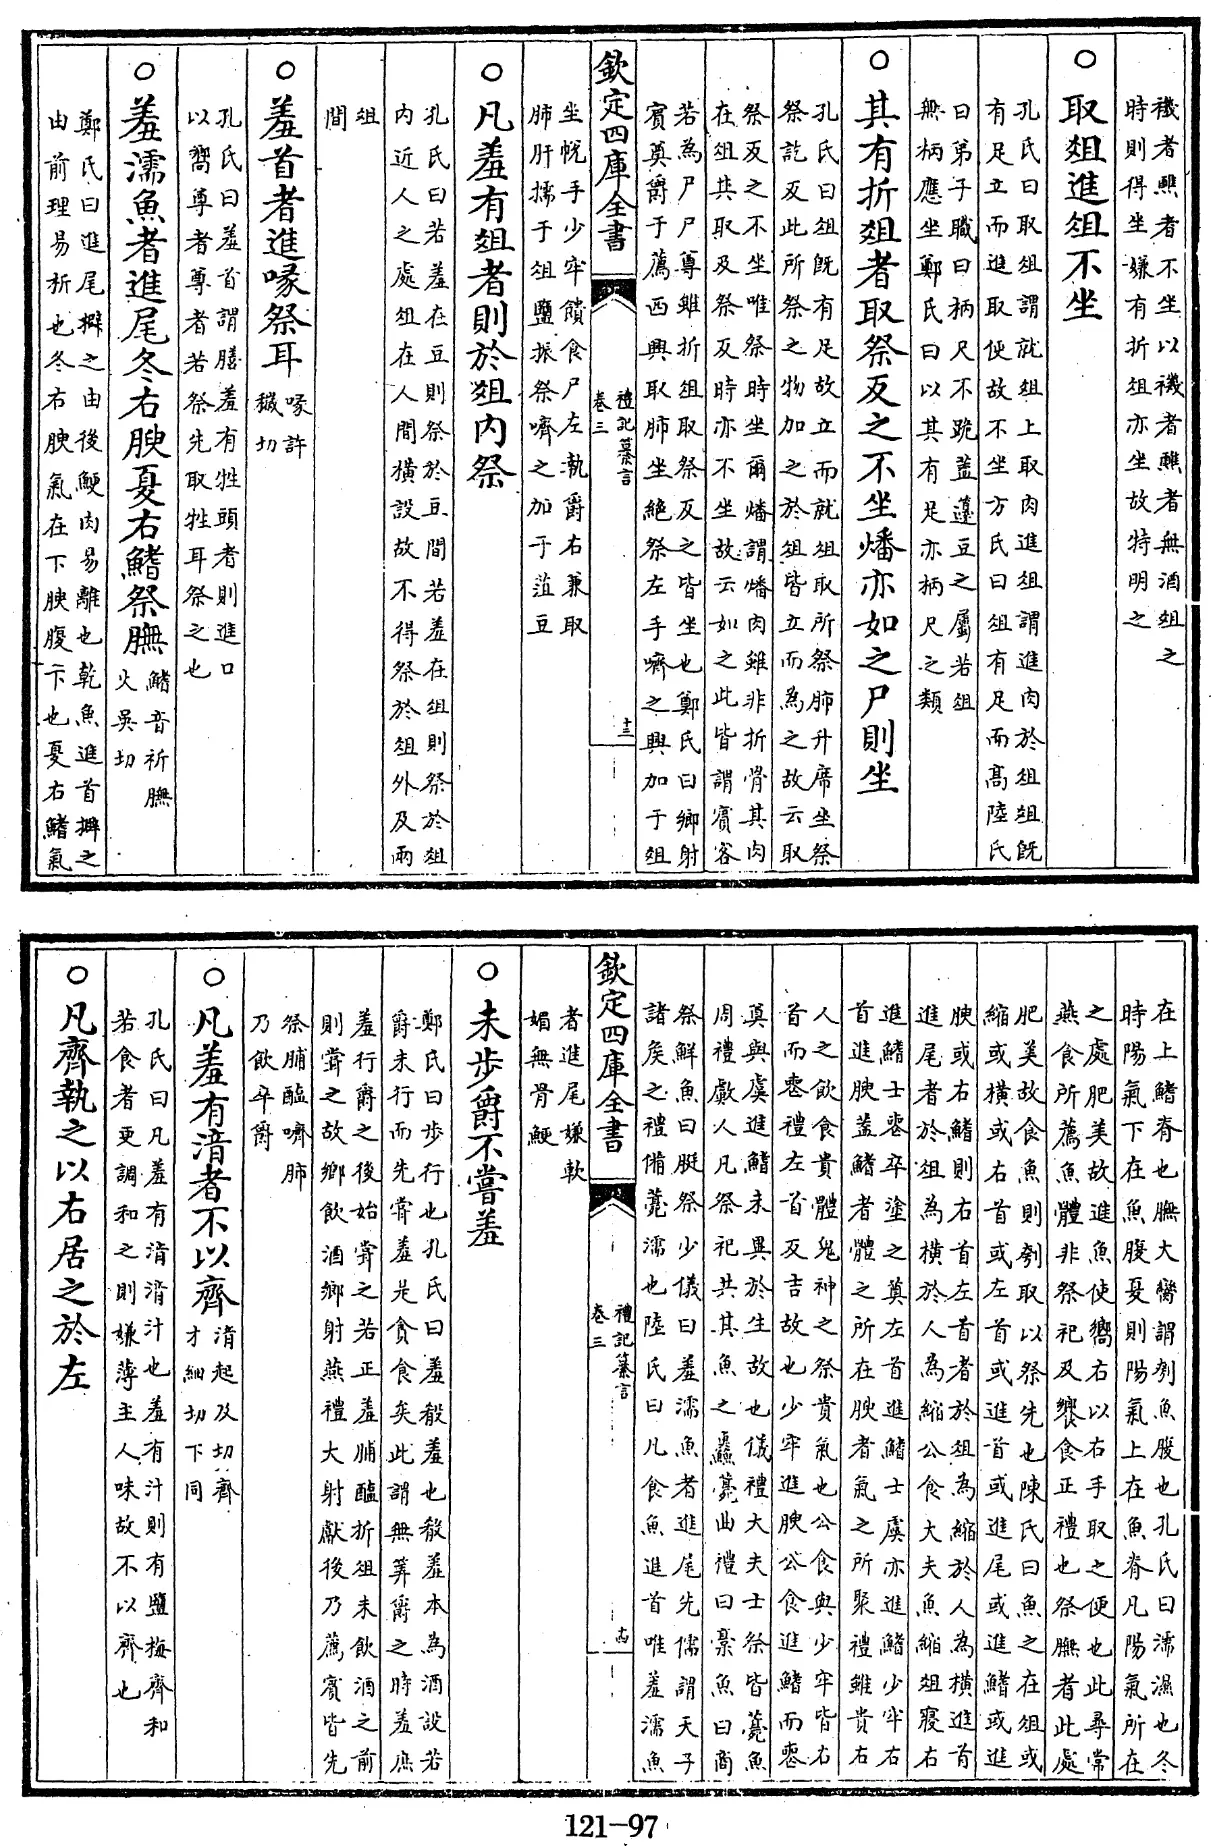 禨者醮者不坐以禨者醮者無酒俎之
時則得坐嫌有折俎亦坐故特明之
○取俎進俎不坐
孔氏曰取俎謂就俎上取肉進俎謂進肉於俎俎既
有足立而進取便故不坐方氏曰俎有足而髙陸氏
曰弟子職曰柄尺不跪葢籩豆之屬若俎
無柄應坐鄭氏曰以其有足亦柄尺之類
○其有折俎者取祭反之不坐燔亦如之尸則坐
孔氏曰俎既有足故立而就俎取所祭肺升席坐祭
祭訖反此所祭之物加之於俎皆立而為之故云取
祭反之不坐唯祭時坐爾燔謂燔肉雖非折骨其肉
在俎其取及祭反時亦不坐故云如之此皆謂賔客
若為尸尸尊雖折俎取祭反之皆坐也鄭氏曰鄉射
賔奠爵于薦西興取肺坐絶祭左手嚌之興加于俎
欽定四庫全書
禮記纂言
卷三
十三
坐帨手少牢饋食尸左執爵右兼取
肺肝擩于俎鹽振祭嚌之加于菹豆
○凡羞有俎者則於俎内祭
孔氏曰若羞在豆則祭於豆間若羞在俎則祭於俎
内近人之處俎在人間横設故不得祭於俎外及兩
俎
間
○羞首者進喙祭耳
喙許
穢切
孔氏曰羞首謂膳羞有牲頭者則進口
以嚮尊者尊者若祭先取牲耳祭之也
○羞濡魚者進尾冬右腴夏右鰭祭膴
鰭音祈膴
火吳切
鄭氏曰進尾擗之由後鯁肉易離也乾魚進首擗之
由前理易析也冬右腴氣在下腴腹下也夏右鰭氣
在上鰭脊也膴大臠謂刳魚腹也孔氏曰濡濕也冬
時陽氣下在魚腹夏則陽氣上在魚脊凡陽氣所在
之處肥美故進魚使嚮右以右手取之便也此尋常
燕食所薦魚體非祭祀及饗食正禮也祭膴者此處
肥美故食魚則刳取以祭先也陳氏曰魚之在俎或
縮或横或右首或左首或進首或進尾或進鰭或進
腴或右鰭則右首左首者於俎為縮於人為横進首
進尾者於俎為横於人為縮公食大夫魚縮俎寢右
進鰭士喪卒塗之奠左首進鰭士虞亦進鰭少牢右
首進腴葢鰭者體之所在腴者氣之所聚禮雖貴右
人之飲食貴體鬼神之祭貴氣也公食與少牢皆右
首而喪禮左首反吉故也少牢進腴公食進鰭而喪
奠與虞進鰭未異於生故也儀禮大夫士祭皆薧魚
周禮䱷人凡祭祀共其魚之鱻薧曲禮曰稾魚曰商
祭鮮魚曰脡祭少儀曰羞濡魚者進尾先儒謂天子
諸侯之禮備薧濡也陸氏曰凡食魚進首唯羞濡魚
欽定四庫全書
禮記纂言
卷三
十四
者進尾嫌軟
媚無骨鯁
○未步爵不嘗羞
鄭氏曰步行也孔氏曰羞殽羞也殽羞本為酒設若
爵未行而先嘗羞是貪食矣此謂無筭爵之時羞庶
羞行爵之後始嘗之若正羞脯醢折俎未飲酒之前
則嘗之故鄉飲酒鄉射燕禮大射獻後乃薦賔皆先
祭脯醢嚌肺
乃飲卒爵
○凡羞有湆者不以齊
湆起及切齊
才細切下同
孔氏曰凡羞有湆湆汁也羞有汁則有鹽梅齊和
若食者更調和之則嫌薄主人味故不以齊也
○凡齊執之以右居之於左
121-97